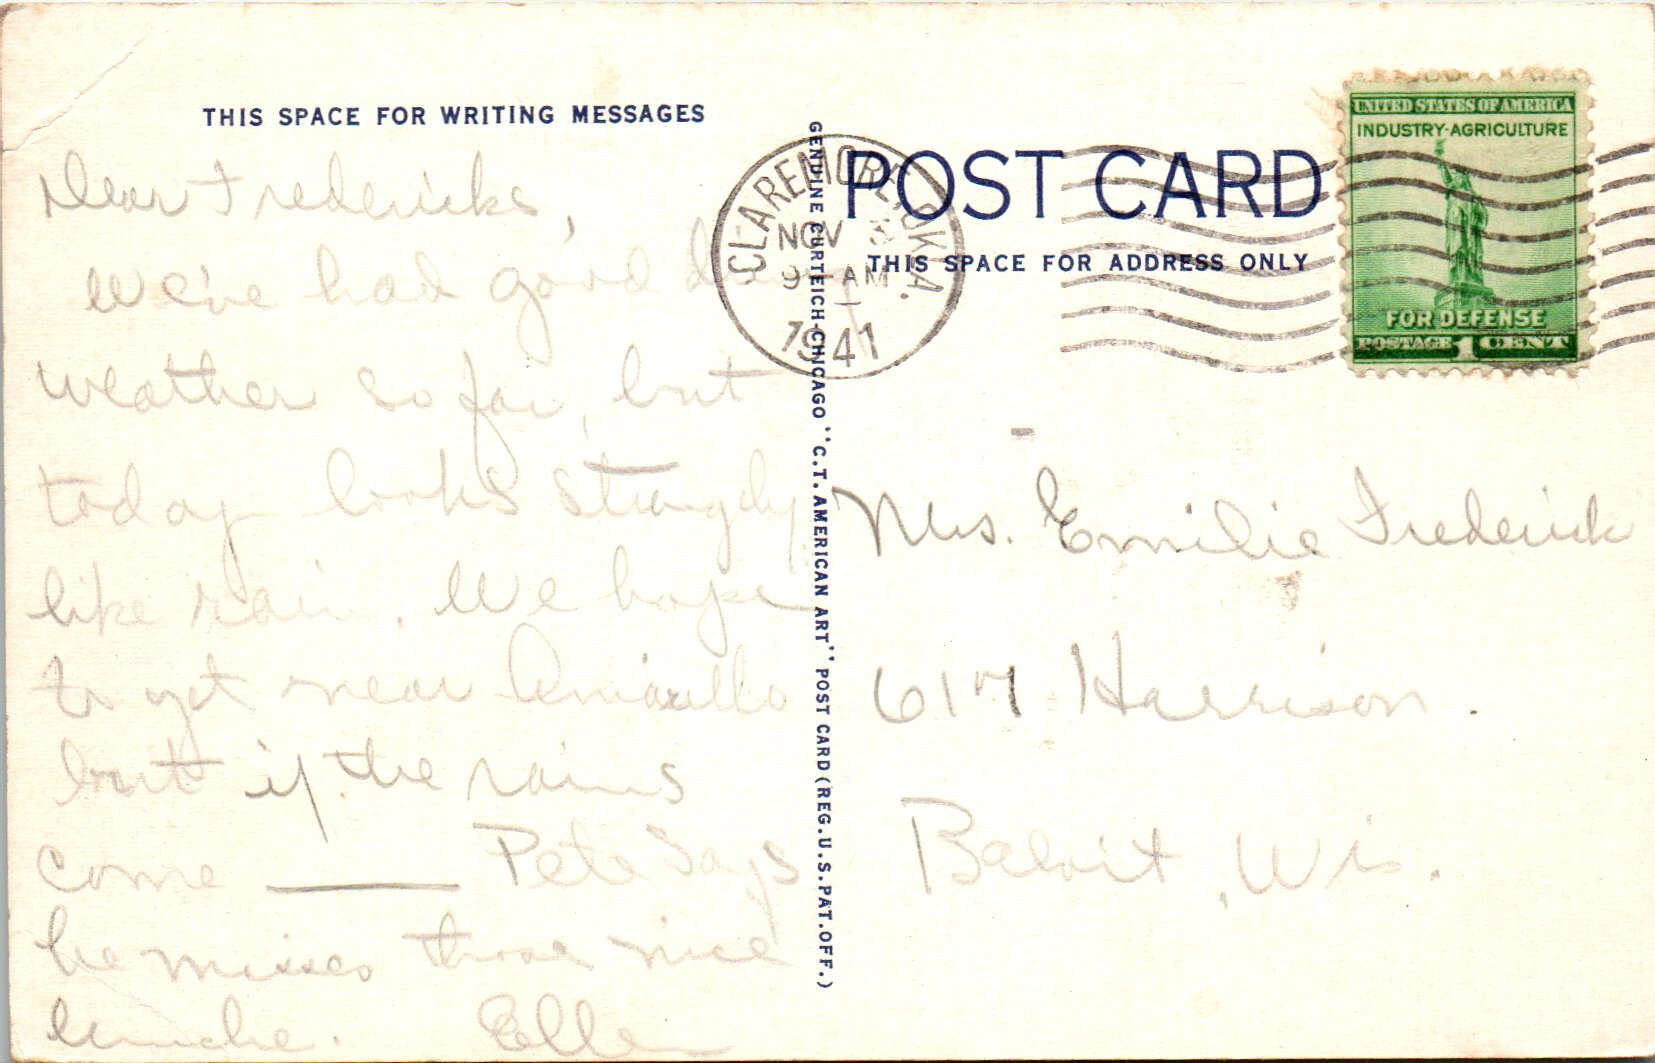 THIS SPACE FOR WRITING MESSAGES
Dear Fredericks,
We've had good
weather so far, but
today looks strangely
like rain. We hope
to get near Amarillo
but if the rains
come ——— Pete says
he misses those nice
lunche.
Ellen
GENUINE CURTEICH-CHICAGO "C.T. AMERICAN ART" POST CARD (REG. U.S. PAT. OFF.)
POST CARD
THIS SPACE FOR ADDRESS ONLY
CLAREMORE, OKLA.
NOV 3
9 - AM
1941
UNITED STATES OF AMERICA
INDUSTRY-AGRICULTURE
FOR DEFENSE
POSTAGE 1 CENT
Mrs. Emilie Frederick
617 Harrison.
Beloit, Wis.